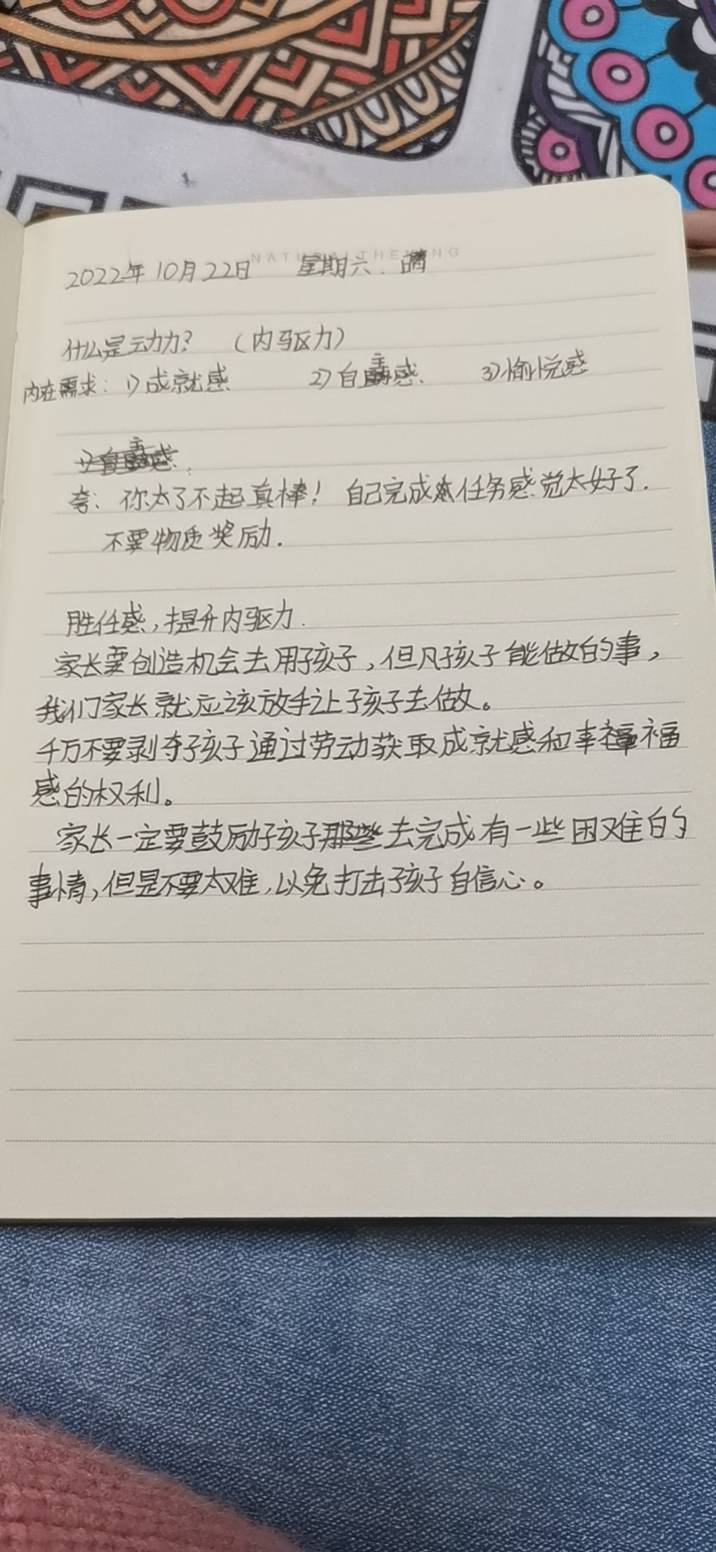 NATURAL THE KING
2022年10月22日 星期六. 晴
什么是动力? (内驱力)
内在需求: 1) 成就感 2) 自主感. 3) 愉悦感
夸: 你太了不起真棒! 自己完成任务感觉太好了.
不要物质奖励.
胜任感,提升内驱力.
家长要创造机会去用孩子,但凡孩子能做的事,
我们家长就应该放手让孩子去做。
千万不要剥夺孩子通过劳动获取成就感和幸福
感的权利。
家长一定要鼓励孩子去完成有一些困难的
事情,但是不要太难,以免打击孩子自信心。